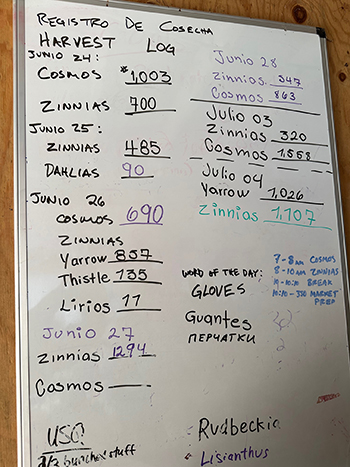 REGISTRO DE COSECHA
HARVEST LOG
JUNIO 24:
COSMOS *1,003
ZINNIAS 700
JUNIO 25:
ZINNIAS 485
DAHLIAS 90
JUNIO 26
COSMOS 690
ZINNIAS
Yarrow 857
Thistle 135
Lirios 11
Junio 27
Zinnias 1294
Cosmos
USQ
bunches stuff
Junio 28
Zinnios 347
Cosmos 863
Julio 03
Zinnias 320
Cosmos 1,558
Julio 04
Yarrow 1,026
Zinnias 1,107
WORD OF THE DAY:
GLOVES
Guantes
ПЕРЧАТКИ
7-8am COSMOS
8-10am ZINNIAS
BREAK
MARKET
PREP
Rudbeckia
Lisianthus